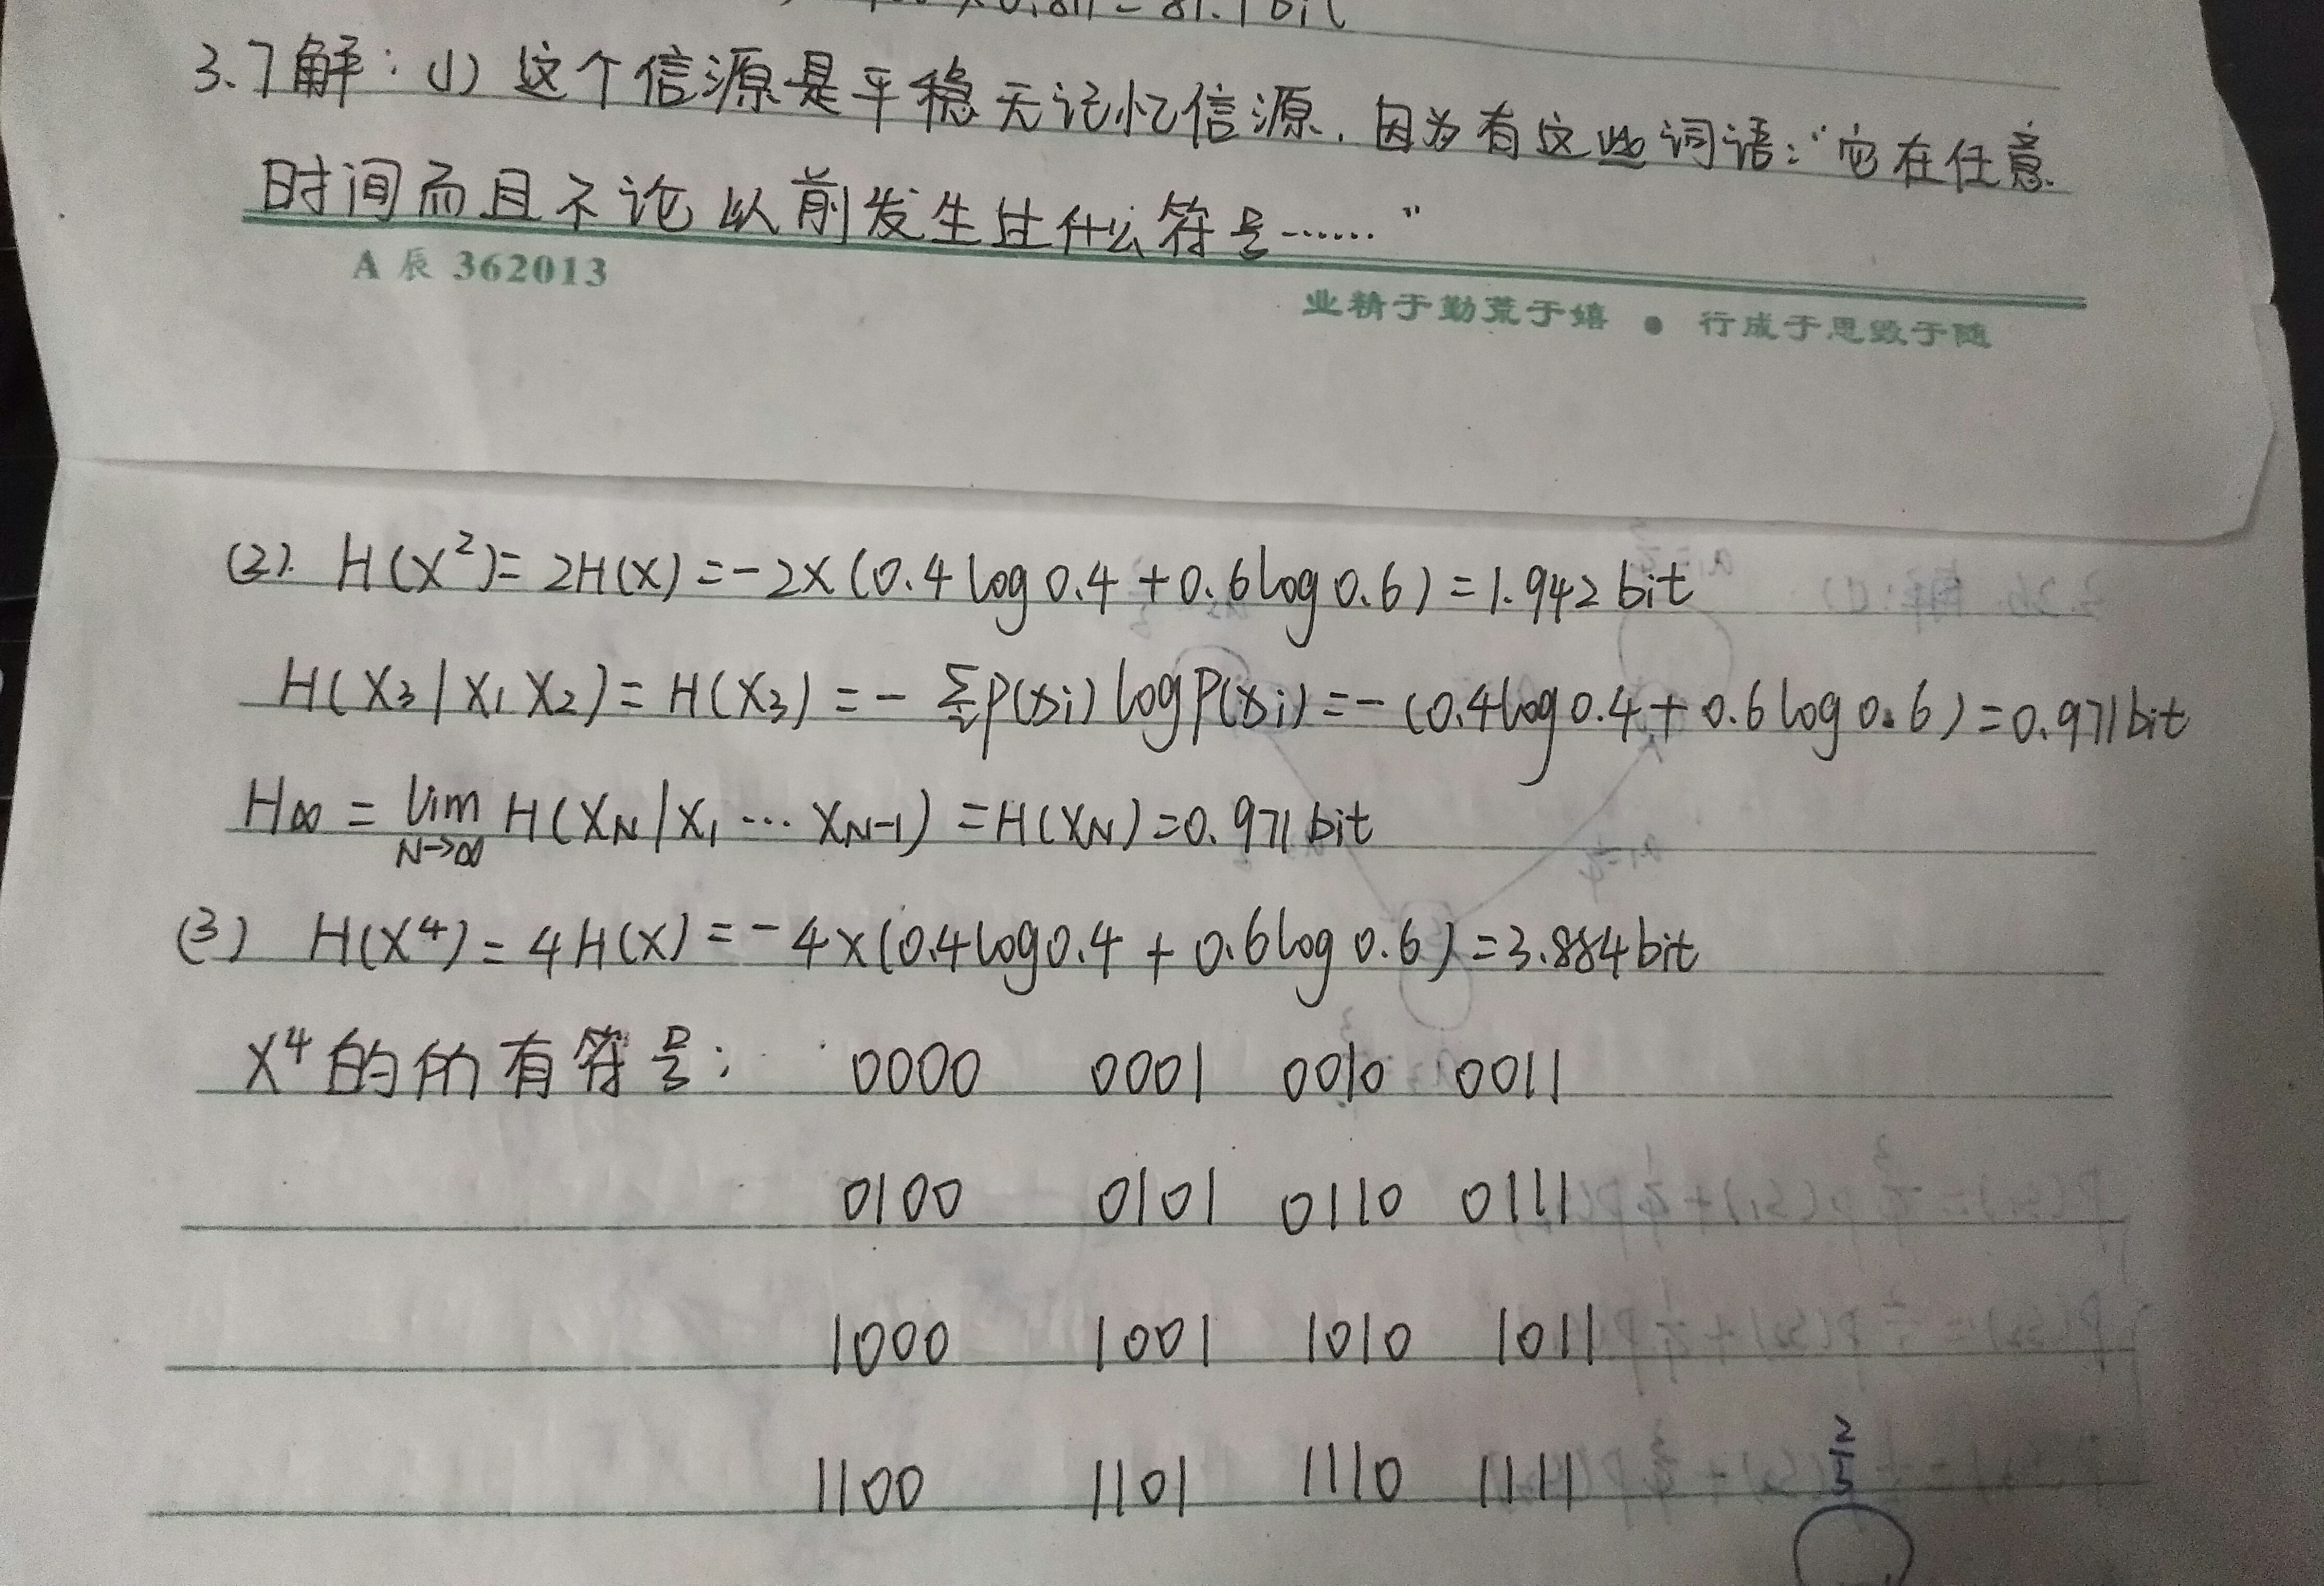 3.7解：(1) 这个信源是平稳无记忆信源，因为有这些词语："它在任意
时间而且不论以前发生过什么符号……"
A 辰 362013
业精于勤荒于嬉 ● 行成于思毁于随
(2). H(X²)= 2H(X) = -2×(0.4log0.4+0.6log0.6)=1.942bit
H(X₃|X₁X₂)= H(X₃) = - ∑ᵢp(xᵢ)logP(xᵢ)=-(0.4log0.4+0.6log0.6)=0.971bit
H∞ = lim N→∞ H(X_N|X₁ … X_N-1) =H(X_N)=0.971bit
(3) H(X⁴)= 4H(X) = -4×(0.4log0.4 + 0.6log0.6)=3.884bit
X⁴的所有符号： 0000 0001 0010 0011
0100 0101 0110 0111
1000 1001 1010 1011
1100 1101 1110 1111
2/5